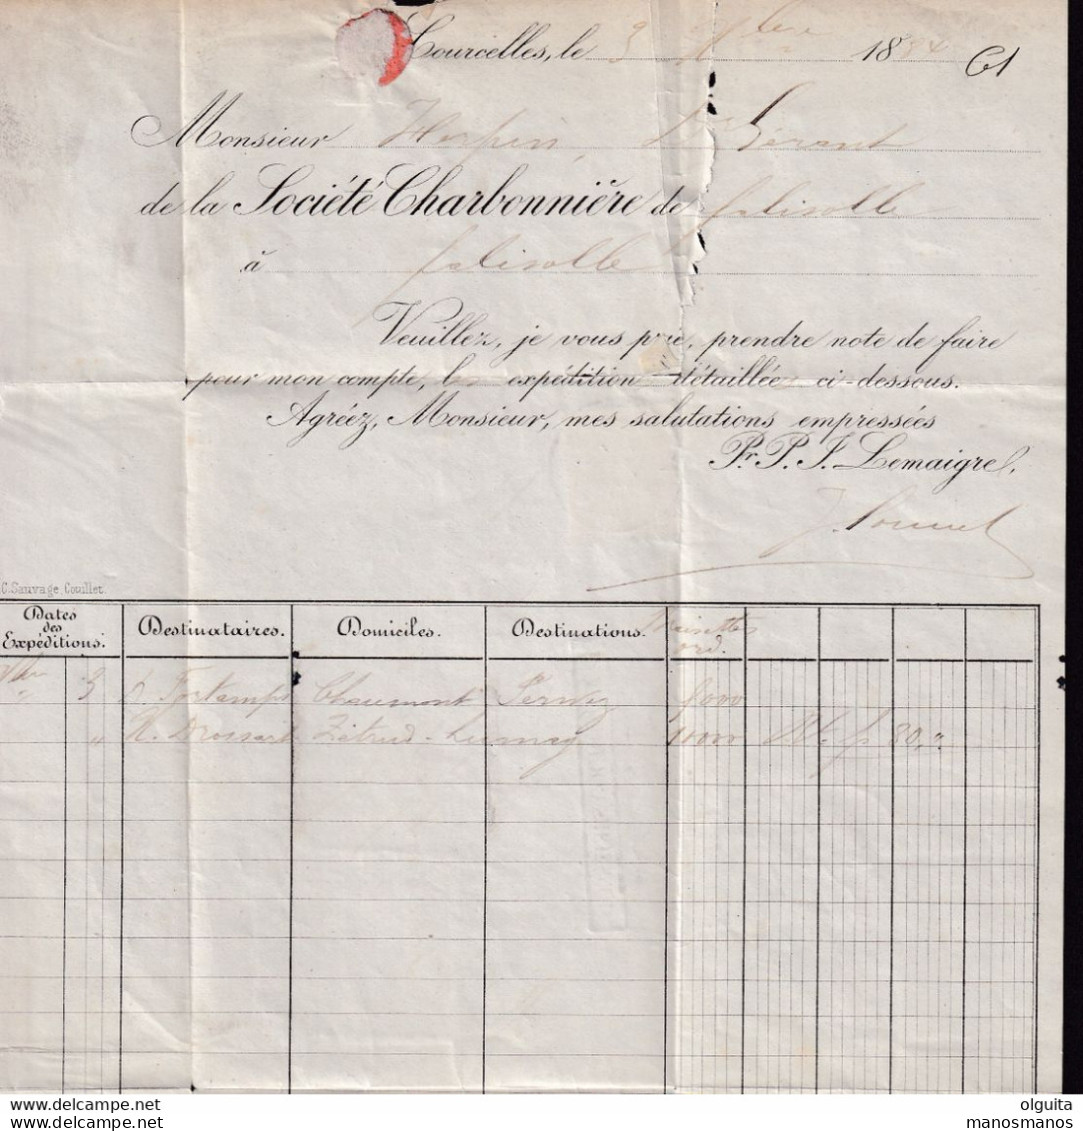 Courcelles, le 3 1884 61
Monsieur Herpin, Le Gérant
de la Société Charbonnière de falisolle
à falisolle
Veuillez, je vous prie, prendre note de faire
pour mon compte, les expédition détaillées ci-dessous.
Agréez, Monsieur, mes salutations empressées
Pr. P. J. Lemaigre,
C. Sauvage, Couillet.
Dates des Expéditions. Destinataires. Domiciles. Destinations.
3 D. Fortamps Chaumont Perwez
" H. Brossart Zétrud-Lumay 10000 80,"
olguita
manosmanos